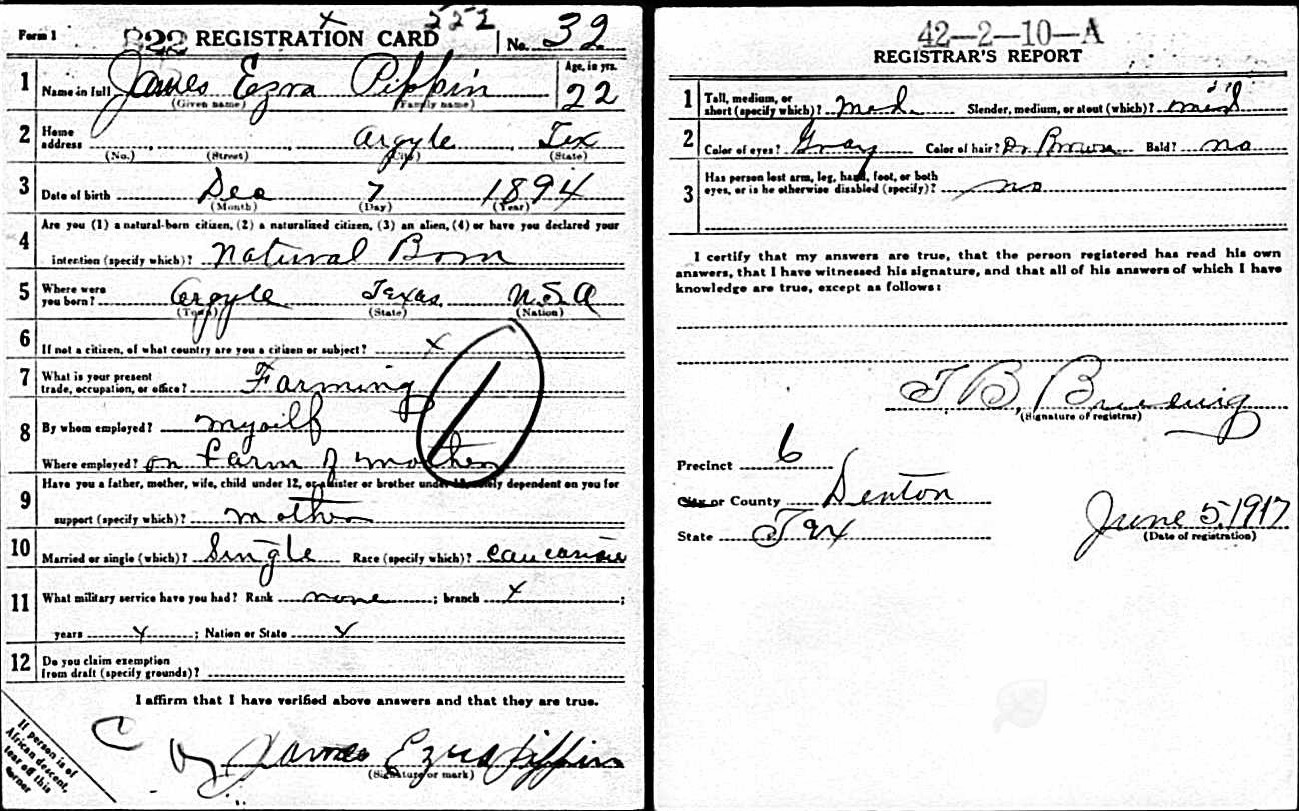 Form 1 822 REGISTRATION CARD 552 No. 39
1 Name in full James Ezra Pippin Age, in yrs. 22
(Given name) (Family name)
2 Home address Argyle Tex
(No.) (Street) (City) (State)
3 Date of birth Dec 7 1894
(Month) (Day) (Year)
4 Are you (1) a natural-born citizen, (2) a naturalized citizen, (3) an alien, (4) or have you declared your
intention (specify which)? Natural Born
5 Where were you born? Argyle Texas U.S.A
(Town) (State) (Nation)
6 If not a citizen, of what country are you a citizen or subject? x
7 What is your present trade, occupation, or office? Farming
8 By whom employed? myself
Where employed? on farm of mother
9 Have you a father, mother, wife, child under 12, or a sister or brother under 12, solely dependent on you for
support (specify which)? mother
10 Married or single (which)? Single Race (specify which)? Caucasian
11 What military service have you had? Rank none ; branch x ;
years x ; Nation or State x
12 Do you claim exemption from draft (specify grounds)?
I affirm that I have verified above answers and that they are true.
James Ezra Pippin
(Signature or mark)
If person is of
African descent,
tear off this
corner
42-2-10-A
REGISTRAR'S REPORT
1 Tall, medium, or short (specify which)? Med Slender, medium, or stout (which)? med
2 Color of eyes? Gray Color of hair? Dr Brown Bald? no
3 Has person lost arm, leg, hand, foot, or both eyes, or is he otherwise disabled (specify)? no
I certify that my answers are true, that the person registered has read his own
answers, that I have witnessed his signature, and that all of his answers of which I have
knowledge are true, except as follows:
(Signature of registrar)
Precinct 6
City or County Denton
State Tex June 5, 1917
(Date of registration)